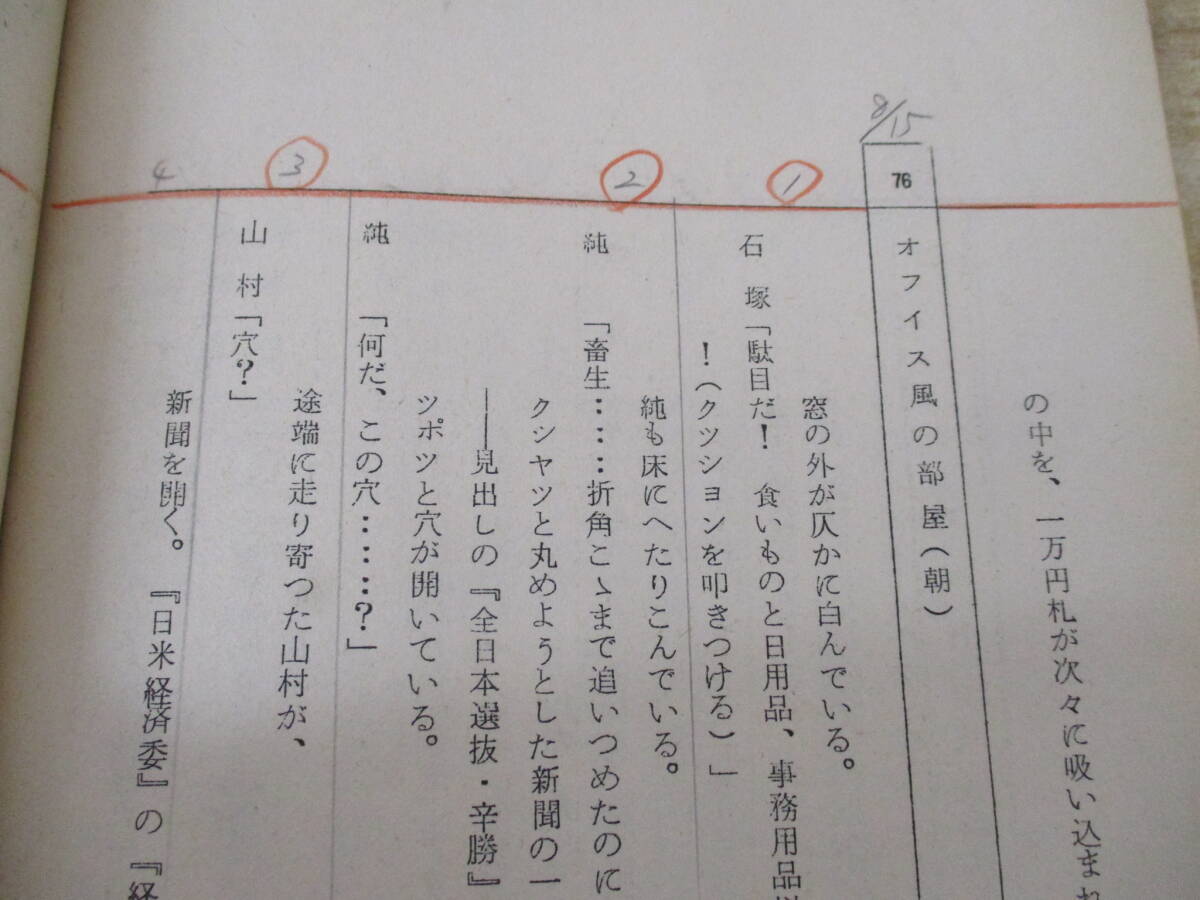 8/15
の中を、一万円札が次々に吸い込まれ
76 オフイス風の部屋（朝）
①
窓の外が仄かに白んでいる。
石塚「駄目だ！ 食いものと日用品、事務用品
！（クツシヨンを叩きつける）」
②
純も床にへたりこんでいる。
純「畜生‥‥折角こゝまで追いつめたのに
クシヤツと丸めようとした新聞の一
――見出しの『全日本選抜・辛勝』
ツポツと穴が開いている。
純「何だ、この穴‥‥？」
③
途端に走り寄つた山村が、
山村「穴？」
4
新聞を開く。『日米経済委』の『経